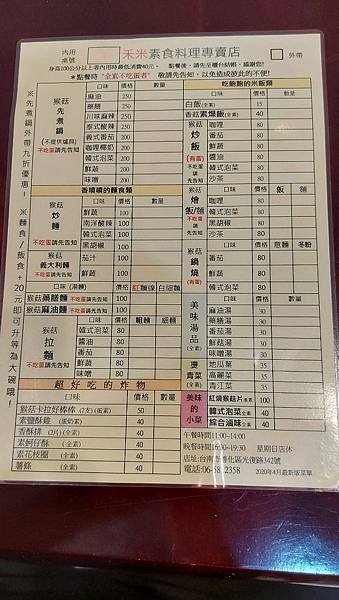 內用
桌號
禾米素食料理專賣店
外帶
身高100公分以上者內用時最低消費40元。 點餐後,請先至櫃台結帳,感謝您!
*點餐時"全素不吃蛋者"敬請先告知,以免造成彼此的不便!
※先煮鍋外帶九折優惠!
※麵食/飯食+20元即可升等為大碗哦!
口味 價格 數量
猴菇先煮鍋
(不提供爐具)
不吃蛋請先告知
麻油 250
藥膳 250
川味麻辣 250
泰式酸辣 200
義式番茄 200
咖哩椰奶 200
韓式泡菜 200
鮮蔬 200
味噌 200
香噴噴的麵食類
口味 價格 數量
猴菇炒麵
不吃蛋請先告知
鮮蔬 100
南洋酸辣 100
韓式泡菜 100
黑胡椒 100
猴菇義大利麵
不吃蛋請先告知
茄汁 100
鮮蔬 100
口味 (湯麵) 價格 紅麵線 白細麵
猴菇藥膳麵 不吃蛋請先告知 100
猴菇麻油麵 不吃蛋請先告知 100
口味 價格 粗麵 細麵
猴菇拉麵
不吃蛋請先告知
韓式泡菜 80
醬油 80
番茄 80
鮮蔬 80
味噌 80
超好吃的炸物
口味 價格 數量
猴菇卡拉好棒棒 (2支)(蛋素) 50
素鹽酥雞 (蛋奶素) 40
香酥排 (2片)(全素) 40
素蚵仔酥 (全素) 40
素花枝圈 (全素) 40
薯條 (全素) 40
吃飽飽的米飯類
口味 價格 數量
白飯(全素) 15
香菇素燥飯(全素) 40
猴菇炒飯
(有蛋)
不吃蛋請先告知
咖哩 80
番茄 80
鮮蔬 80
醬油 80
韓式泡菜 80
沙茶 80
口味 價格 飯 麵
猴菇燴飯/麵
不吃蛋請先告知
咖哩 80
鮮蔬 80
韓式泡菜 80
黑胡椒 80
沙茶 80
口味 價格 意麵 冬粉
猴菇鍋燒
(有蛋)
番茄 80
鮮蔬 80
韓式泡菜 80
口味 價格 數量
美味湯品
(全素)
麻油湯 30
藥膳湯 30
番茄湯 30
鮮蔬湯 30
味噌湯 30
燙青菜
(全素)
地瓜葉 35
高麗菜 35
青江菜 35
美味的小菜
紅燒猴菇片(蛋素) 100
韓式泡菜(全素) 40
綜合滷味(全素) 40
午餐時間11:00~14:00
晚餐時間16:30~19:30 星期日店休
店址:台南市善化區光復路342號
電話:06-58 2358 2020年4月最新版菜單